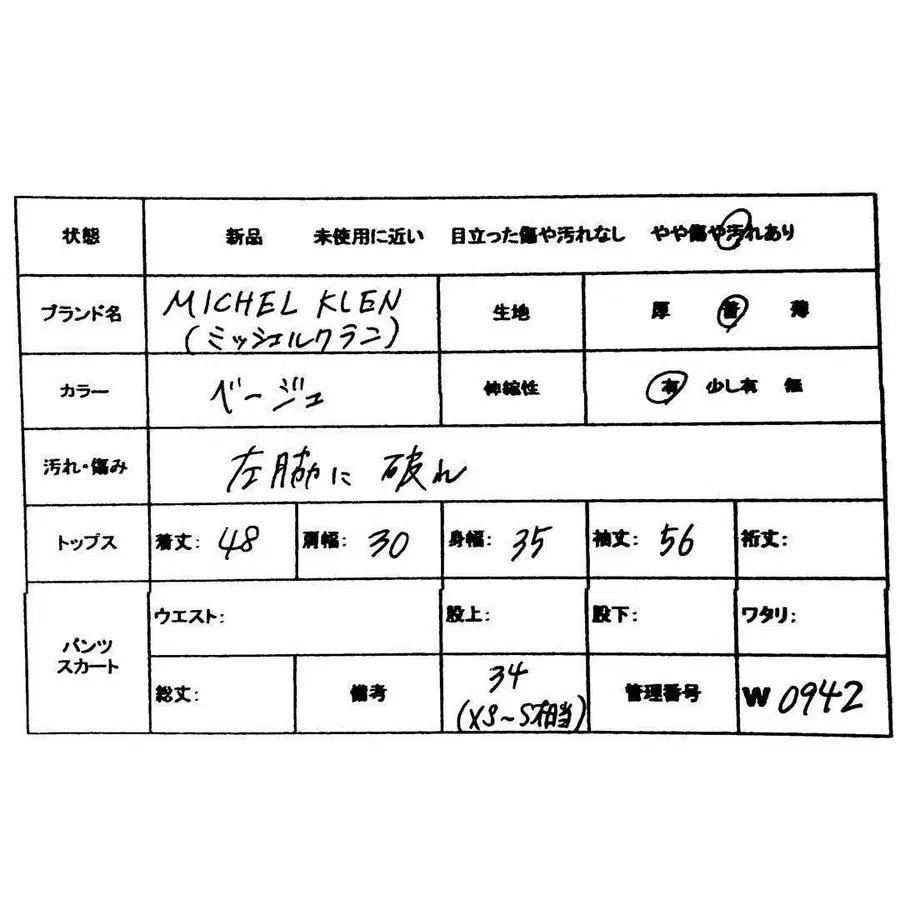 状態 新品 未使用に近い 目立った傷や汚れなし やや傷や汚れあり
ブランド名 MICHEL KLEN 生地 厚 普 薄
(ミッシェルクラン)
カラー ベージュ 伸縮性 有 少し有 無
汚れ・傷み 左脇に破れ
トップス 着丈: 48 肩幅: 30 身幅: 35 袖丈: 56 裄丈:
パンツ スカート ウエスト: 股上: 股下: ワタリ:
総丈: 備考 34 (XS~S相当) 管理番号 W 0942